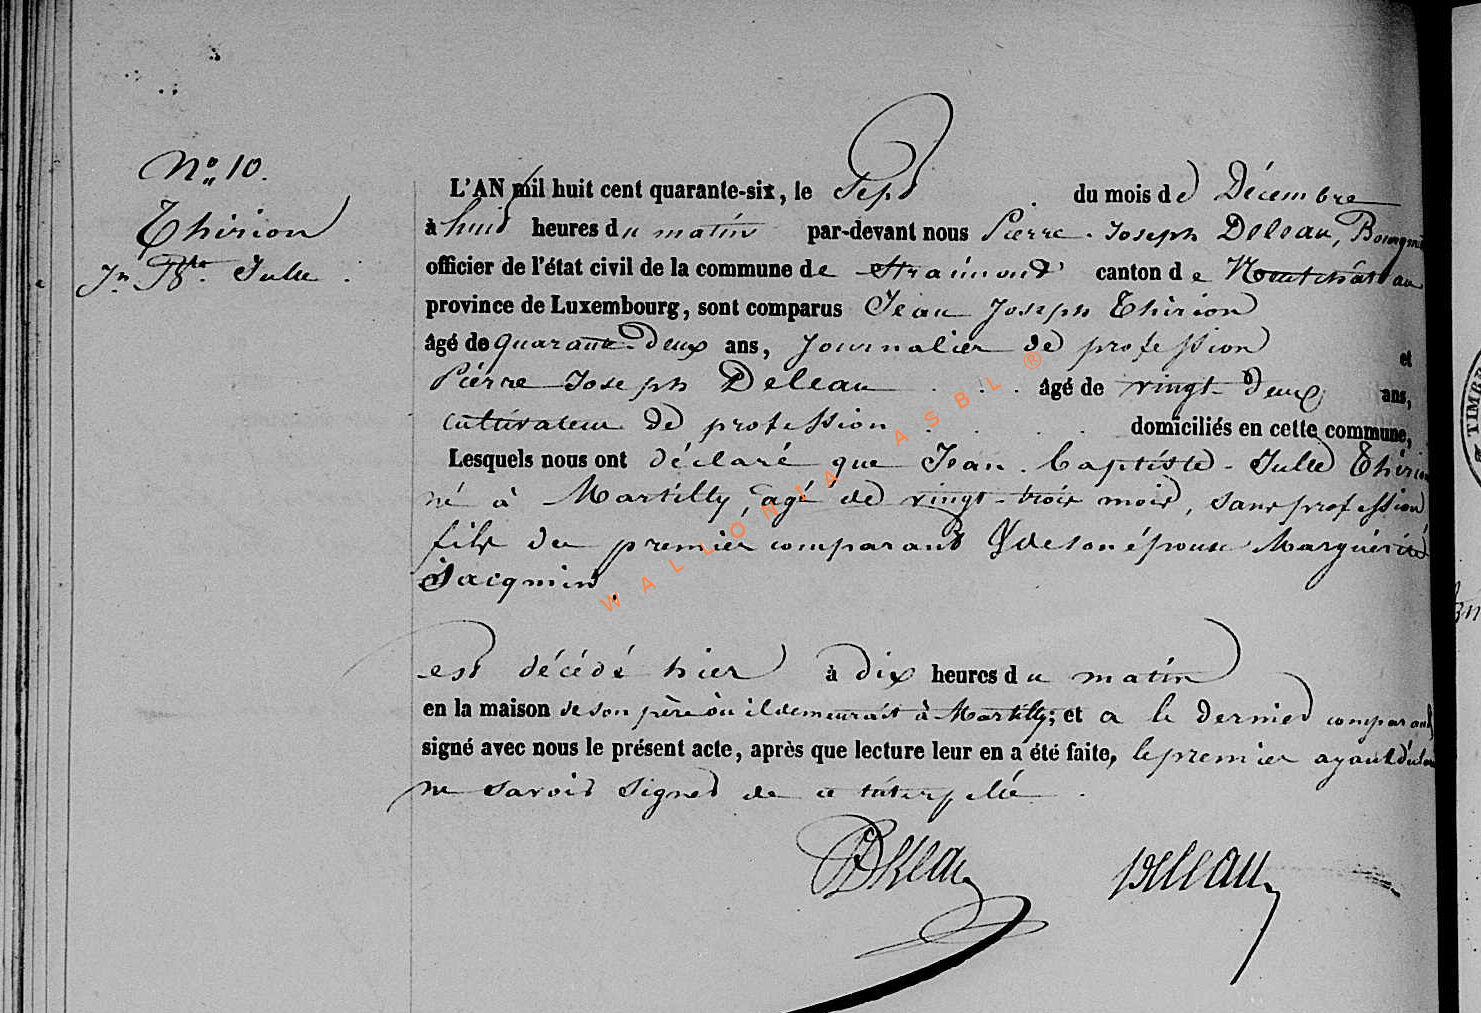 N° 10.
Thirion
Jn Bte Jule.
L'AN mil huit cent quarante-six, le Sept du mois de Décembre
à huit heures du matin par-devant nous Pierre-Joseph Deleau, Bourgm
officier de l'état civil de la commune de Straimont canton de Neufchâteau
province de Luxembourg, sont comparus Jean Joseph Thirion
âgé de quarante-deux ans, journalier de profession et
Pierre Joseph Deleau âgé de vingt-deux ans,
cultivateur de profession domiciliés en cette commune,
Lesquels nous ont déclaré que Jean-Baptiste-Jule Thirion
né à Martilly, agé de vingt-trois mois, sans profession
fils du premier comparant & de son épouse Marguérite
Jacqmin.
est décédé hier à dix heures du matin
en la maison de son père où il demeurait à Martilly; et a le dernier comparant
signé avec nous le présent acte, après que lecture leur en a été faite, le premier ayant déclaré
ne savoir signer de ce interpellé.
Deleau
Deleau
WALLONIA ASBL ®
TIMBR